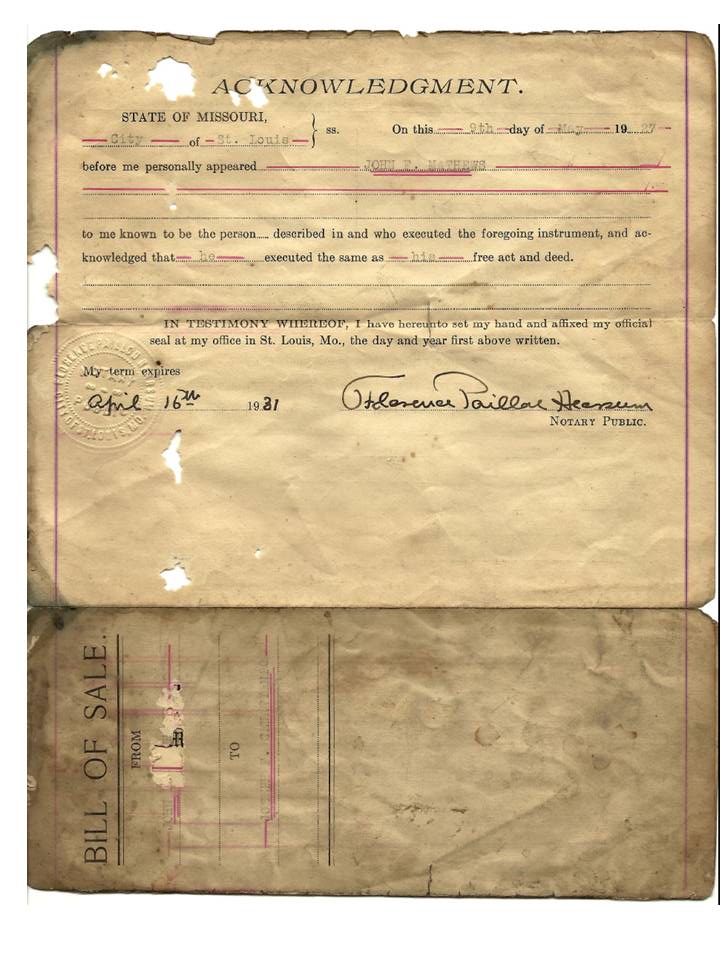 ACKNOWLEDGMENT.
STATE OF MISSOURI,
City of St. Louis } ss. On this 9th day of May 1927
before me personally appeared JOHN F. MATHEWS
to me known to be the person.... described in and who executed the foregoing instrument, and ac-
knowledged that he executed the same as his free act and deed.
IN TESTIMONY WHEREOF, I have hereunto set my hand and affixed my official
seal at my office in St. Louis, Mo., the day and year first above written.
My term expires
April 16th 1931 Florence Paillou
NOTARY PUBLIC.
BILL OF SALE.
FROM
TO